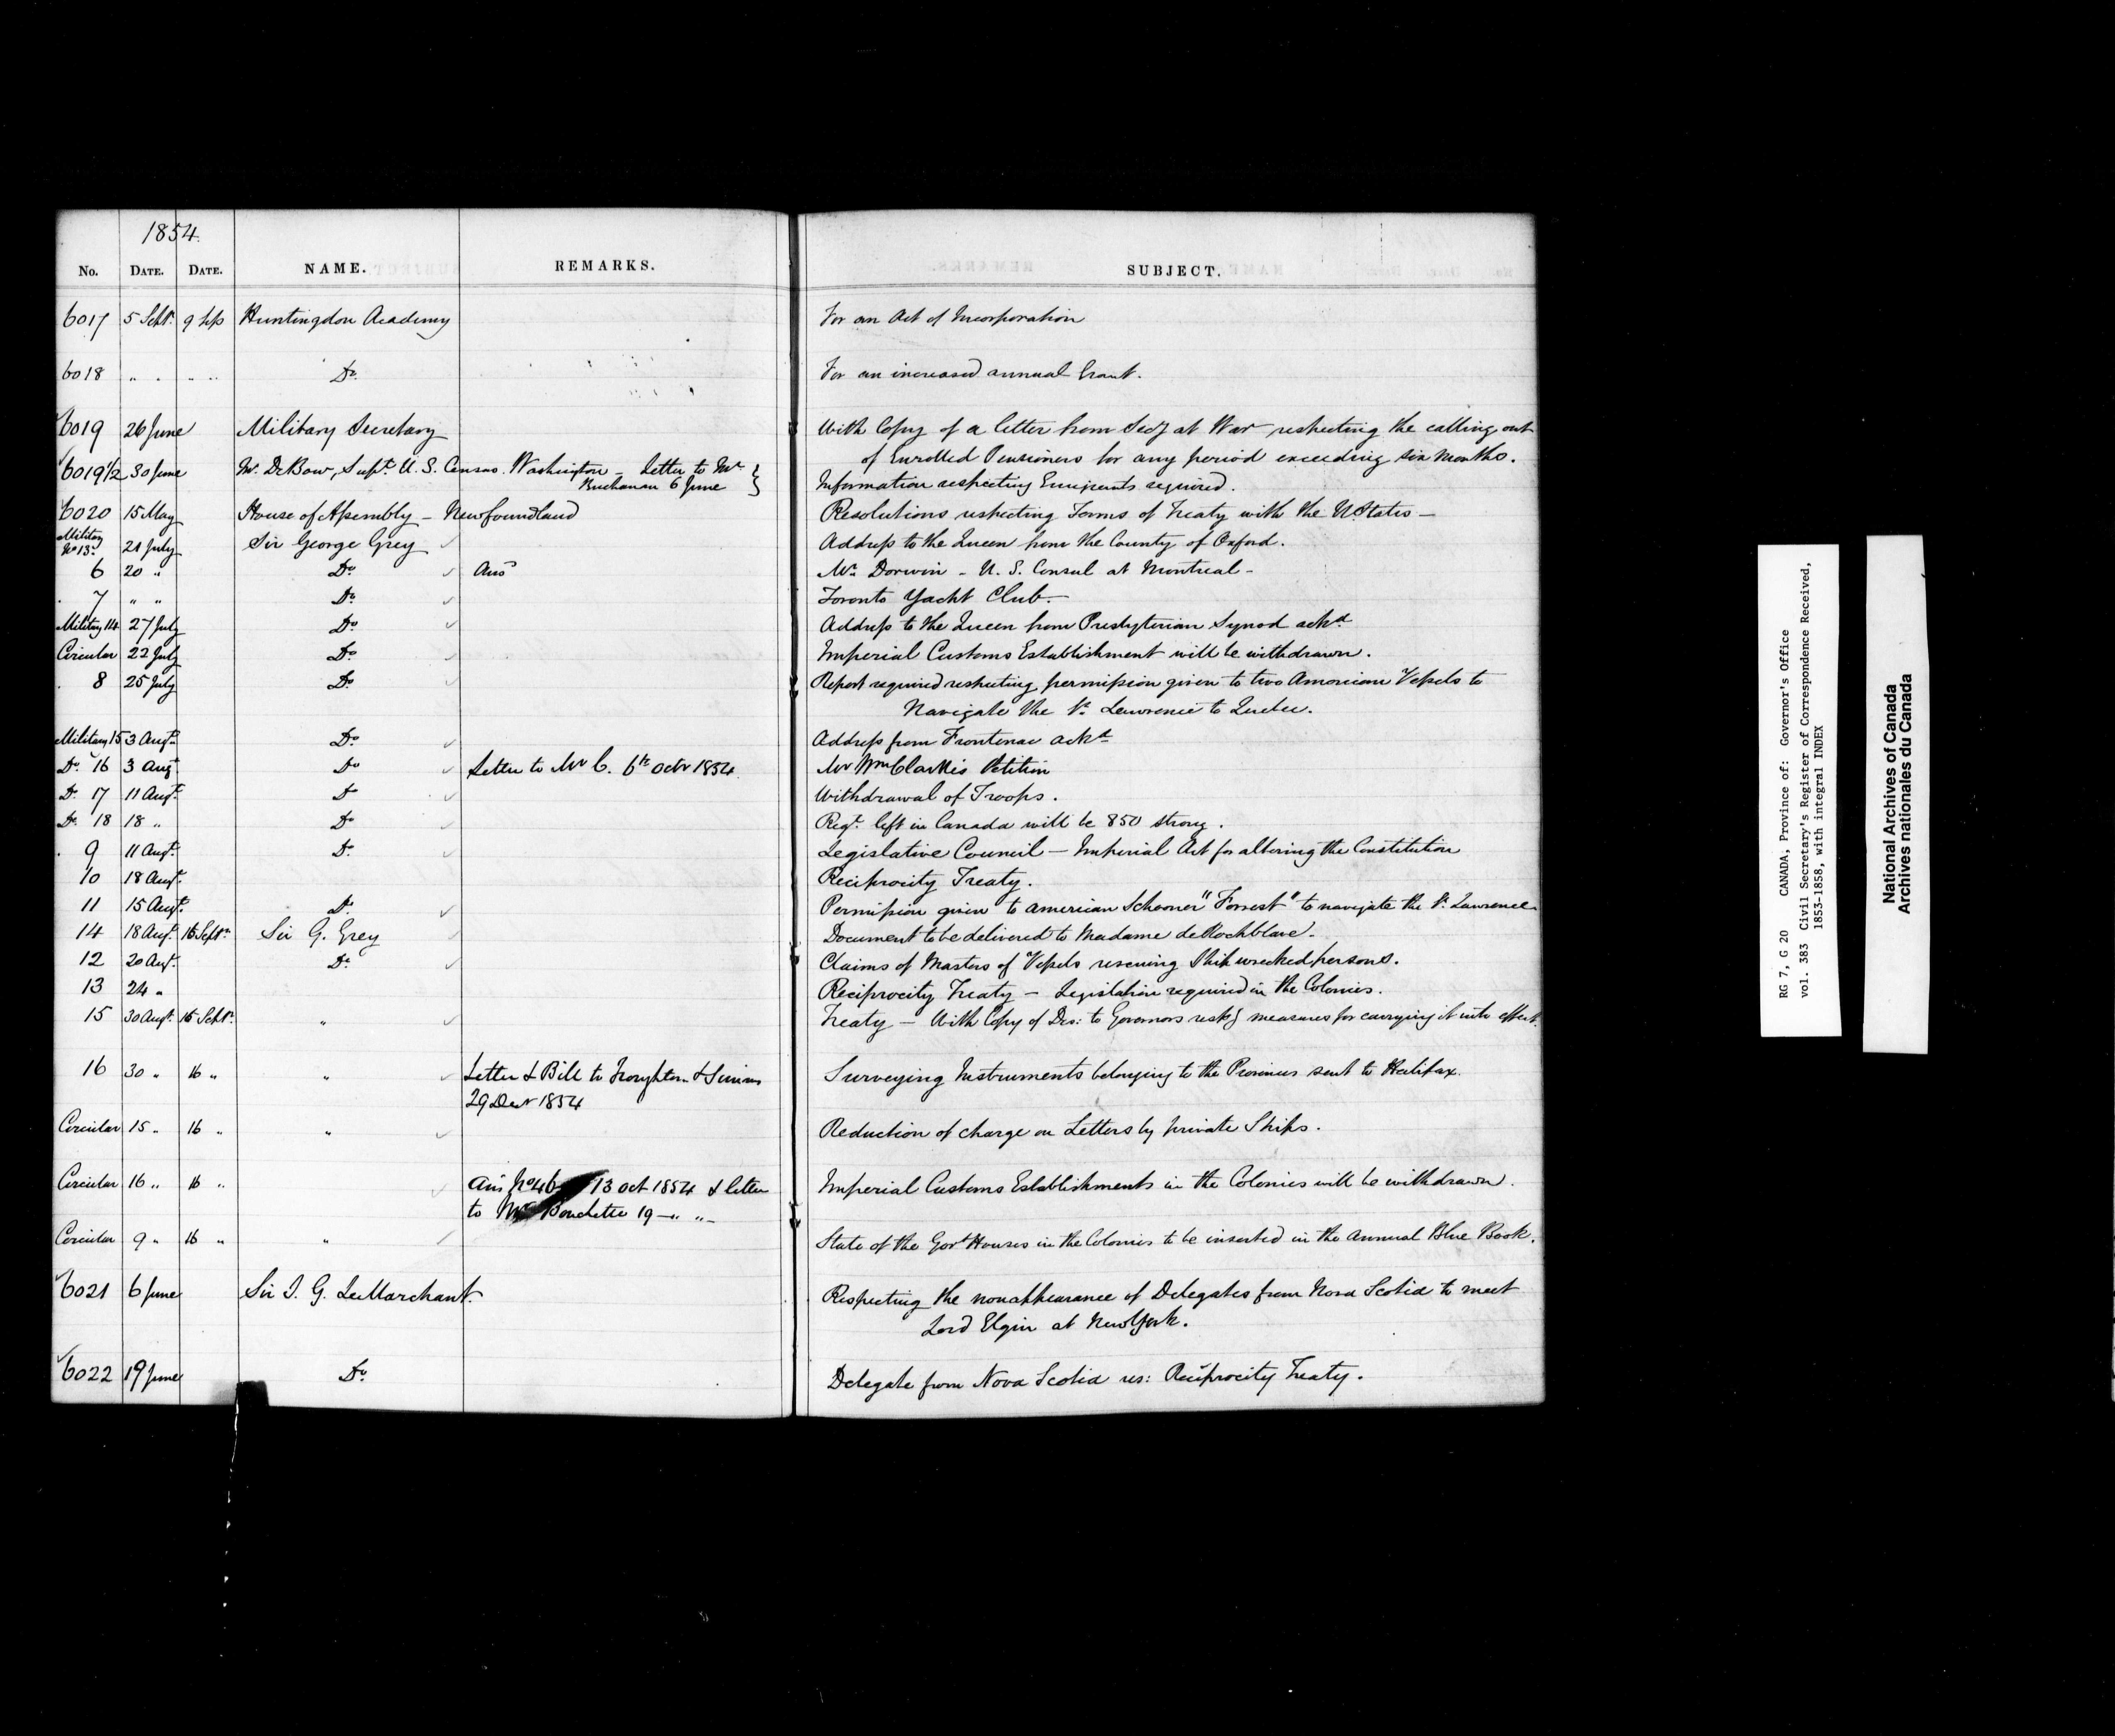 1854.
No. DATE. DATE. NAME. REMARKS. SUBJECT.
6017 5 Septr. 9 Sep Huntingdon Academy For an Act of Incorporation
6018 " . " .. Do. For an increased annual Grant.
6019 26 June Military Secretary With Copy of a letter from Secy at War respecting the calling out
of Enrolled Pensioners for any period exceeding six Months.
6019 1/2 30 June Mr. DeBow, Supt. U. S. Census. Washington – Letter to Mr
Buchanan 6 June } Information respecting Emigrants required.
6020 15 May House of Assembly – Newfoundland Resolutions respecting Terms of Treaty with the U States –
Military
No 13. 21 July Sir George Grey Address to the Queen from the County of Oxford.
6 20 " Do. Ansd Mr. Dorwin – U. S. Consul at Montreal –
7 " " Do. Toronto Yacht Club. –
Military 14 27 July Do. Address to the Queen from Presbyterian Synod ackd
Circular 22 July Do. Imperial Customs Establishment will be withdrawn.
8 25 July Do. Report required respecting permission given to two American Vessels to
Navigate the St. Lawrence to Quebec.
Military 15 3 Augt. Do. Address from Frontenac ackd
Do. 16 3 Augt Do Letter to Mr C. 6th Octr 1854. Mr Wm Clarke's Petition
D. 17 11 Augt. Do Withdrawal of Troops.
Do. 18 18 " Do. Regt. left in Canada will be 850 strong.
9 11 Augt. Do. Legislative Council – Imperial Act for altering the Constitution
10 18 Augt. Reciprocity Treaty.
11 15 Augt. Do. Permission given to American Schooner "Forrest" to navigate the St. Lawrence
14 18 Augt. 16 Septr. Sir G. Grey Document to be delivered to Madame de Rochblave.
12 20 Augt. Do. Claims of Masters of Vessels rescuing Shipwrecked persons.
13 24 " Reciprocity Treaty – Legislation required in the Colonies.
15 30 Augt. 16 Septr. " Treaty – With Copy of Des: to Governors respg measures for carrying it into effect.
16 30 " 16 " " Letter & Bill to Troughton & Simms Surveying Instruments belonging to the Province sent to Halifax.
29 Decr 1854
Circular 15 " 16 " " Reduction of charge on Letters by private Ships.
Circular 16 " 16 " Ansd No 46 13 Oct 1854 & letter Imperial Customs Establishments in the Colonies will be withdrawn.
to Mr Bouchette 19 – " " –
Circular 9 " 16 " " State of the Govt Houses in the Colonies to be inserted in the Annual Blue Book.
6021 6 June Sir J. G. LeMarchant. Respecting the nonappearance of Delegates from Nova Scotia to meet
Lord Elgin at New York.
6022 19 June Do. Delegate from Nova Scotia res: Reciprocity Treaty.
RG 7, G 20 CANADA, Province of: Governor's Office
vol. 383 Civil Secretary's Register of Correspondence Received,
1853-1858, with integral INDEX
National Archives of Canada
Archives nationales du Canada